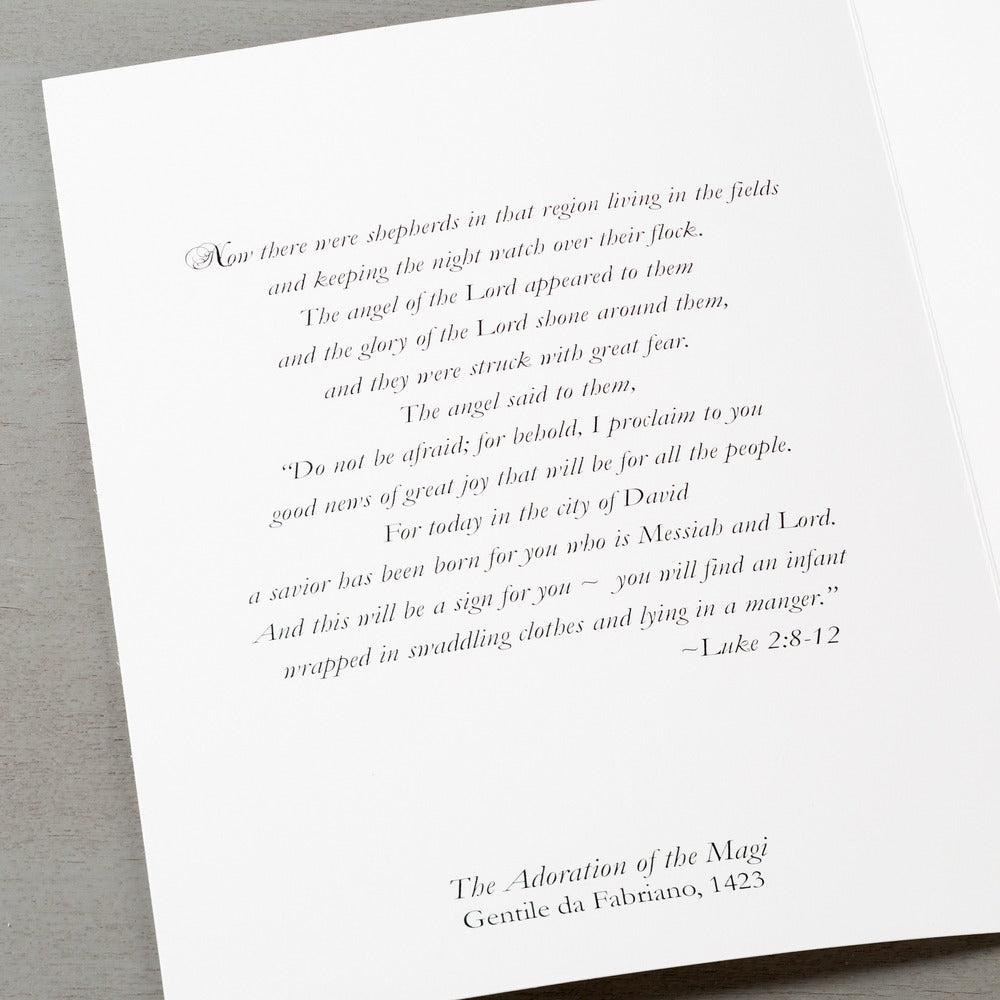 Now there were shepherds in that region living in the fields
and keeping the night watch over their flock.
The angel of the Lord appeared to them
and the glory of the Lord shone around them,
and they were struck with great fear.
The angel said to them,
“Do not be afraid; for behold, I proclaim to you
good news of great joy that will be for all the people.
For today in the city of David
a savior has been born for you who is Messiah and Lord.
And this will be a sign for you ~ you will find an infant
wrapped in swaddling clothes and lying in a manger.”
~Luke 2:8-12
The Adoration of the Magi
Gentile da Fabriano, 1423